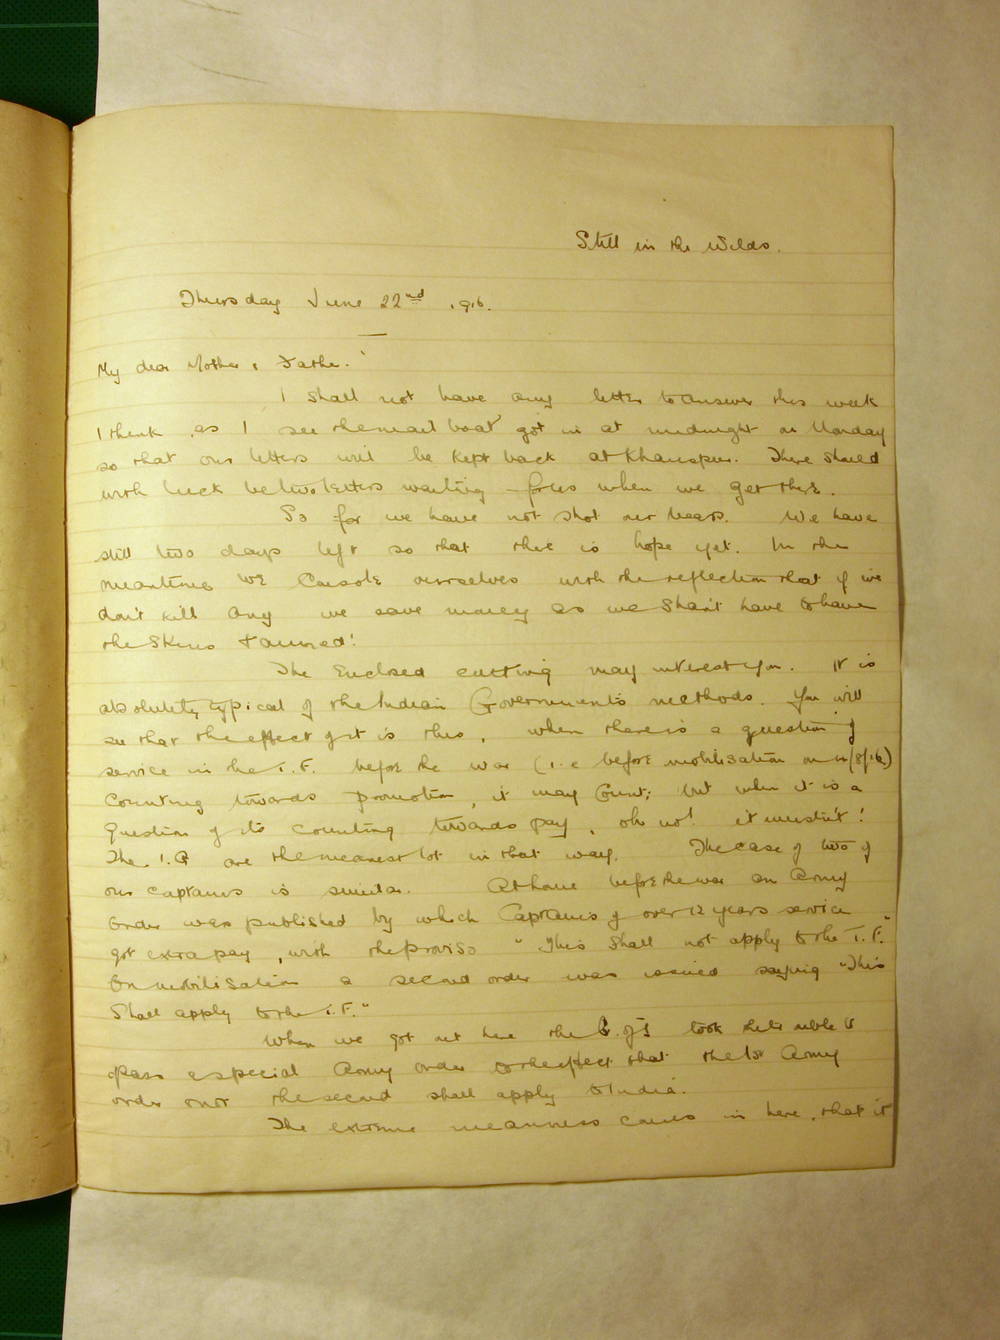 Still in the Wilds.
Thursday June 22nd 1916.
My dear Mother & Father.
I shall not have any letter to answer this week
I think, as I see the mail boat got in at midnight on Monday
so that our letters will be kept back at Khanspur. There should
with luck be two letters waiting for us when we get there.
So far we have not shot our bears. We have
still two days left so that there is hope yet. In the
meantime we console ourselves with the reflection that if we
don't kill any we save money as we shan't have to have
the skins tanned!
The enclosed cutting may interest you. It is
absolutely typical of the Indian Government's methods. You will
see that the effect of it is this, when there is a question of
service in the T.F. before the war (i.e before mobilisation on
counting towards promotion, it may count; but when it is a
question of its counting towards pay, oh no! it mustn't!
The I.G are the meanest lot in that way. The case of two of
our captains is similar. At home before the war an Army
Order was published by which Captains of over 12 years service
got extra pay, with the proviso "This shall not apply to the T.F."
On mobilisation a second order was issued saying "This
shall apply to the T.F."
When we got out here the G. of I took the trouble to
pass a special Army order to the effect that the 1st Army
order & not the second shall apply to India.
The extreme meanness comes in here, that it